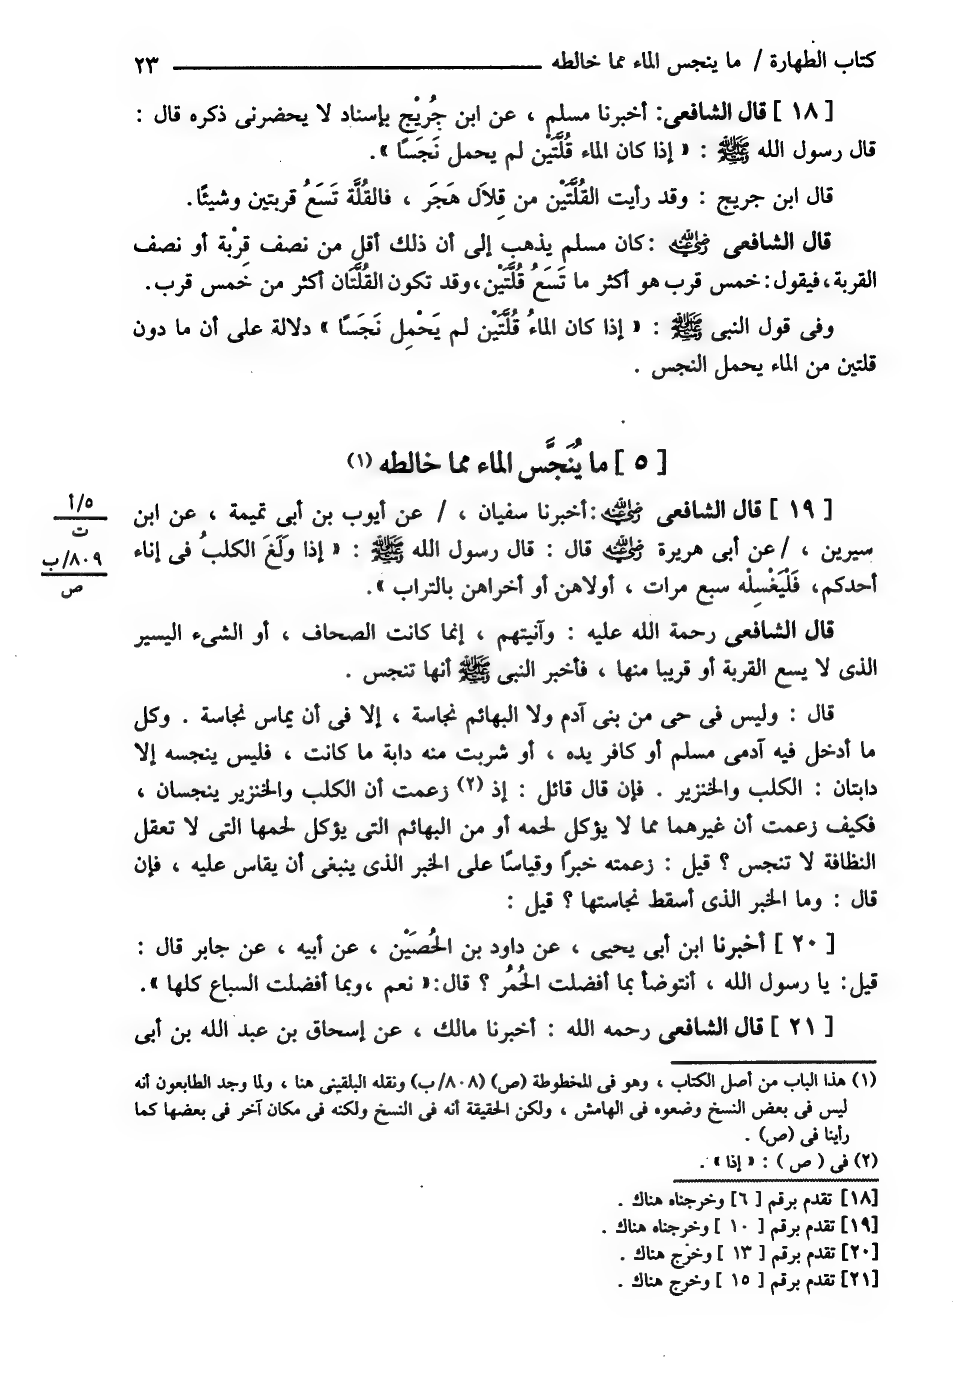 كتاب الطهارة / ما ينجس الماء مما خالطه ــــــــ ٢٣
[ ١٨ ] قال الشافعى: أخبرنا مسلم ، عن ابن جُرَيْج بإسناد لا يحضرنى ذكره قال :
قال رسول الله ﷺ : « إذا كان الماء قُلَّتَيْن لم يحمل نَجَسًا ».
قال ابن جريج : وقد رأيت القُلَّتَيْن من قِلاَل هَجَر ، فالقُلَّة تَسَعُ قربتين وشيئًا.
قال الشافعى رَضِيَ اللهُ عَنْهُ :كان مسلم يذهب إلى أن ذلك أقل من نصف قِرْبة أو نصف
القربة،فيقول:خمس قرب هو أكثر ما تَسَعُ قُلَّتَيْن،وقد تكون القلَّتَان أكثر من خمس قرب.
وفى قول النبى ﷺ : « إذا كان الماءُ قُلَّتَيْن لم يَحْمِل نَجَسًا » دلالة على أن ما دون
قلتين من الماء يحمل النجس .
[ ٥ ] ما يُنَجَّس الماء مما خالطه (١)
[ ١٩ ] قال الشافعى رَضِيَ اللهُ عَنْهُ :أخبرنا سفيان ، / عن أيوب بن أبى تميمة ، عن ابن
٥/أ
ت
سيرين ، /عن أبى هريرة رَضِيَ اللهُ عَنْهُ قال : قال رسول الله ﷺ : « إذا وَلَغَ الكلبُ فى إناء
٨٠٩/ب
ص
أحدكم، فَلْيَغْسِلْه سبع مرات ، أولاهن أو أخراهن بالتراب ».
قال الشافعى رحمة الله عليه : وآنيتهم ، إنما كانت الصحاف ، أو الشىء اليسير
الذى لا يسع القربة أو قريبا منها ، فأخبر النبى ﷺ أنها تنجس .
قال : وليس فى حى من بنى آدم ولا البهائم نجاسة ، إلا فى أن يماس نجاسة . وكل
ما أدخل فيه آدمى مسلم أو كافر يده ، أو شربت منه دابة ما كانت ، فليس ينجسه إلا
دابتان : الكلب والخنزير . فإن قال قائل : إذ (٢) زعمت أن الكلب والخنزير ينجسان ،
فكيف زعمت أن غيرهما مما لا يؤكل لحمه أو من البهائم التى يؤكل لحمها التى لا تعقل
النظافة لا تنجس ؟ قيل : زعمته خبرًا وقياسًا على الخبر الذى ينبغى أن يقاس عليه ، فإن
قال : وما الخبر الذى أسقط نجاستها ؟ قيل :
[ ٢٠ ] أخبرنا ابن أبى يحيى ، عن داود بن الحُصَيْن ، عن أبيه ، عن جابر قال :
قيل: يا رسول الله ، أنتوضأ بما أفضلت الحُمُر ؟ قال:« نعم ،وبما أفضلت السباع كلها ».
[ ٢١ ] قال الشافعى رحمه الله : أخبرنا مالك ، عن إسحاق بن عبد الله بن أبى
(١) هذا الباب من أصل الكتاب ، وهو فى المخطوطة (ص) (٨٠٨/ب) ونقله البلقينى هنا ، ولما وجد الطابعون أنه
ليس فى بعض النسخ وضعوه فى الهامش ، ولكن الحقيقة أنه فى النسخ ولكنه فى مكان آخر فى بعضها كما
رأينا فى (ص) .
(٢) فى ( ص ) : « إذا » .
[١٨] تقدم برقم [ ٦] وخرجناه هناك .
[١٩] تقدم برقم [ ١٠ ] وخرجناه هناك .
[٢٠] تقدم برقم [ ١٣ ] وخرّج هناك .
[٢١] تقدم برقم [ ١٥ ] وخرج هناك .